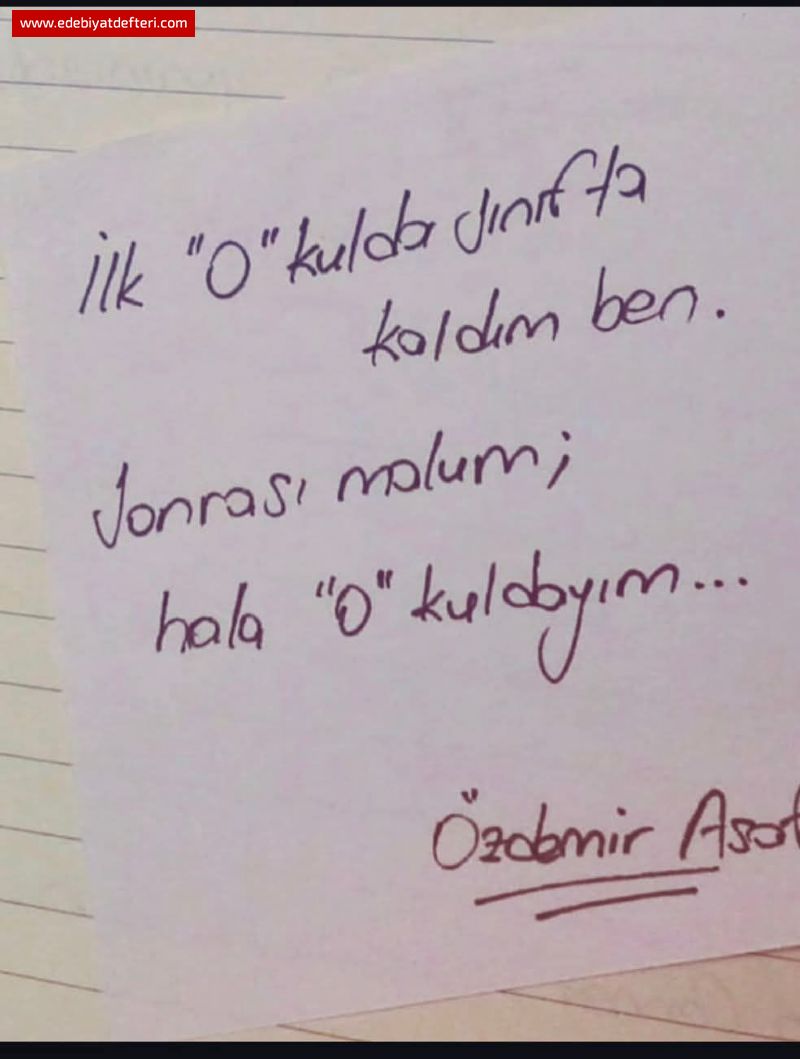 www.edebiyatdefteri.com
İlk "O" kulda sınıfta
kaldım ben.
Sonrası malum;
hala "O" kuldayım...
Özdemir Asaf